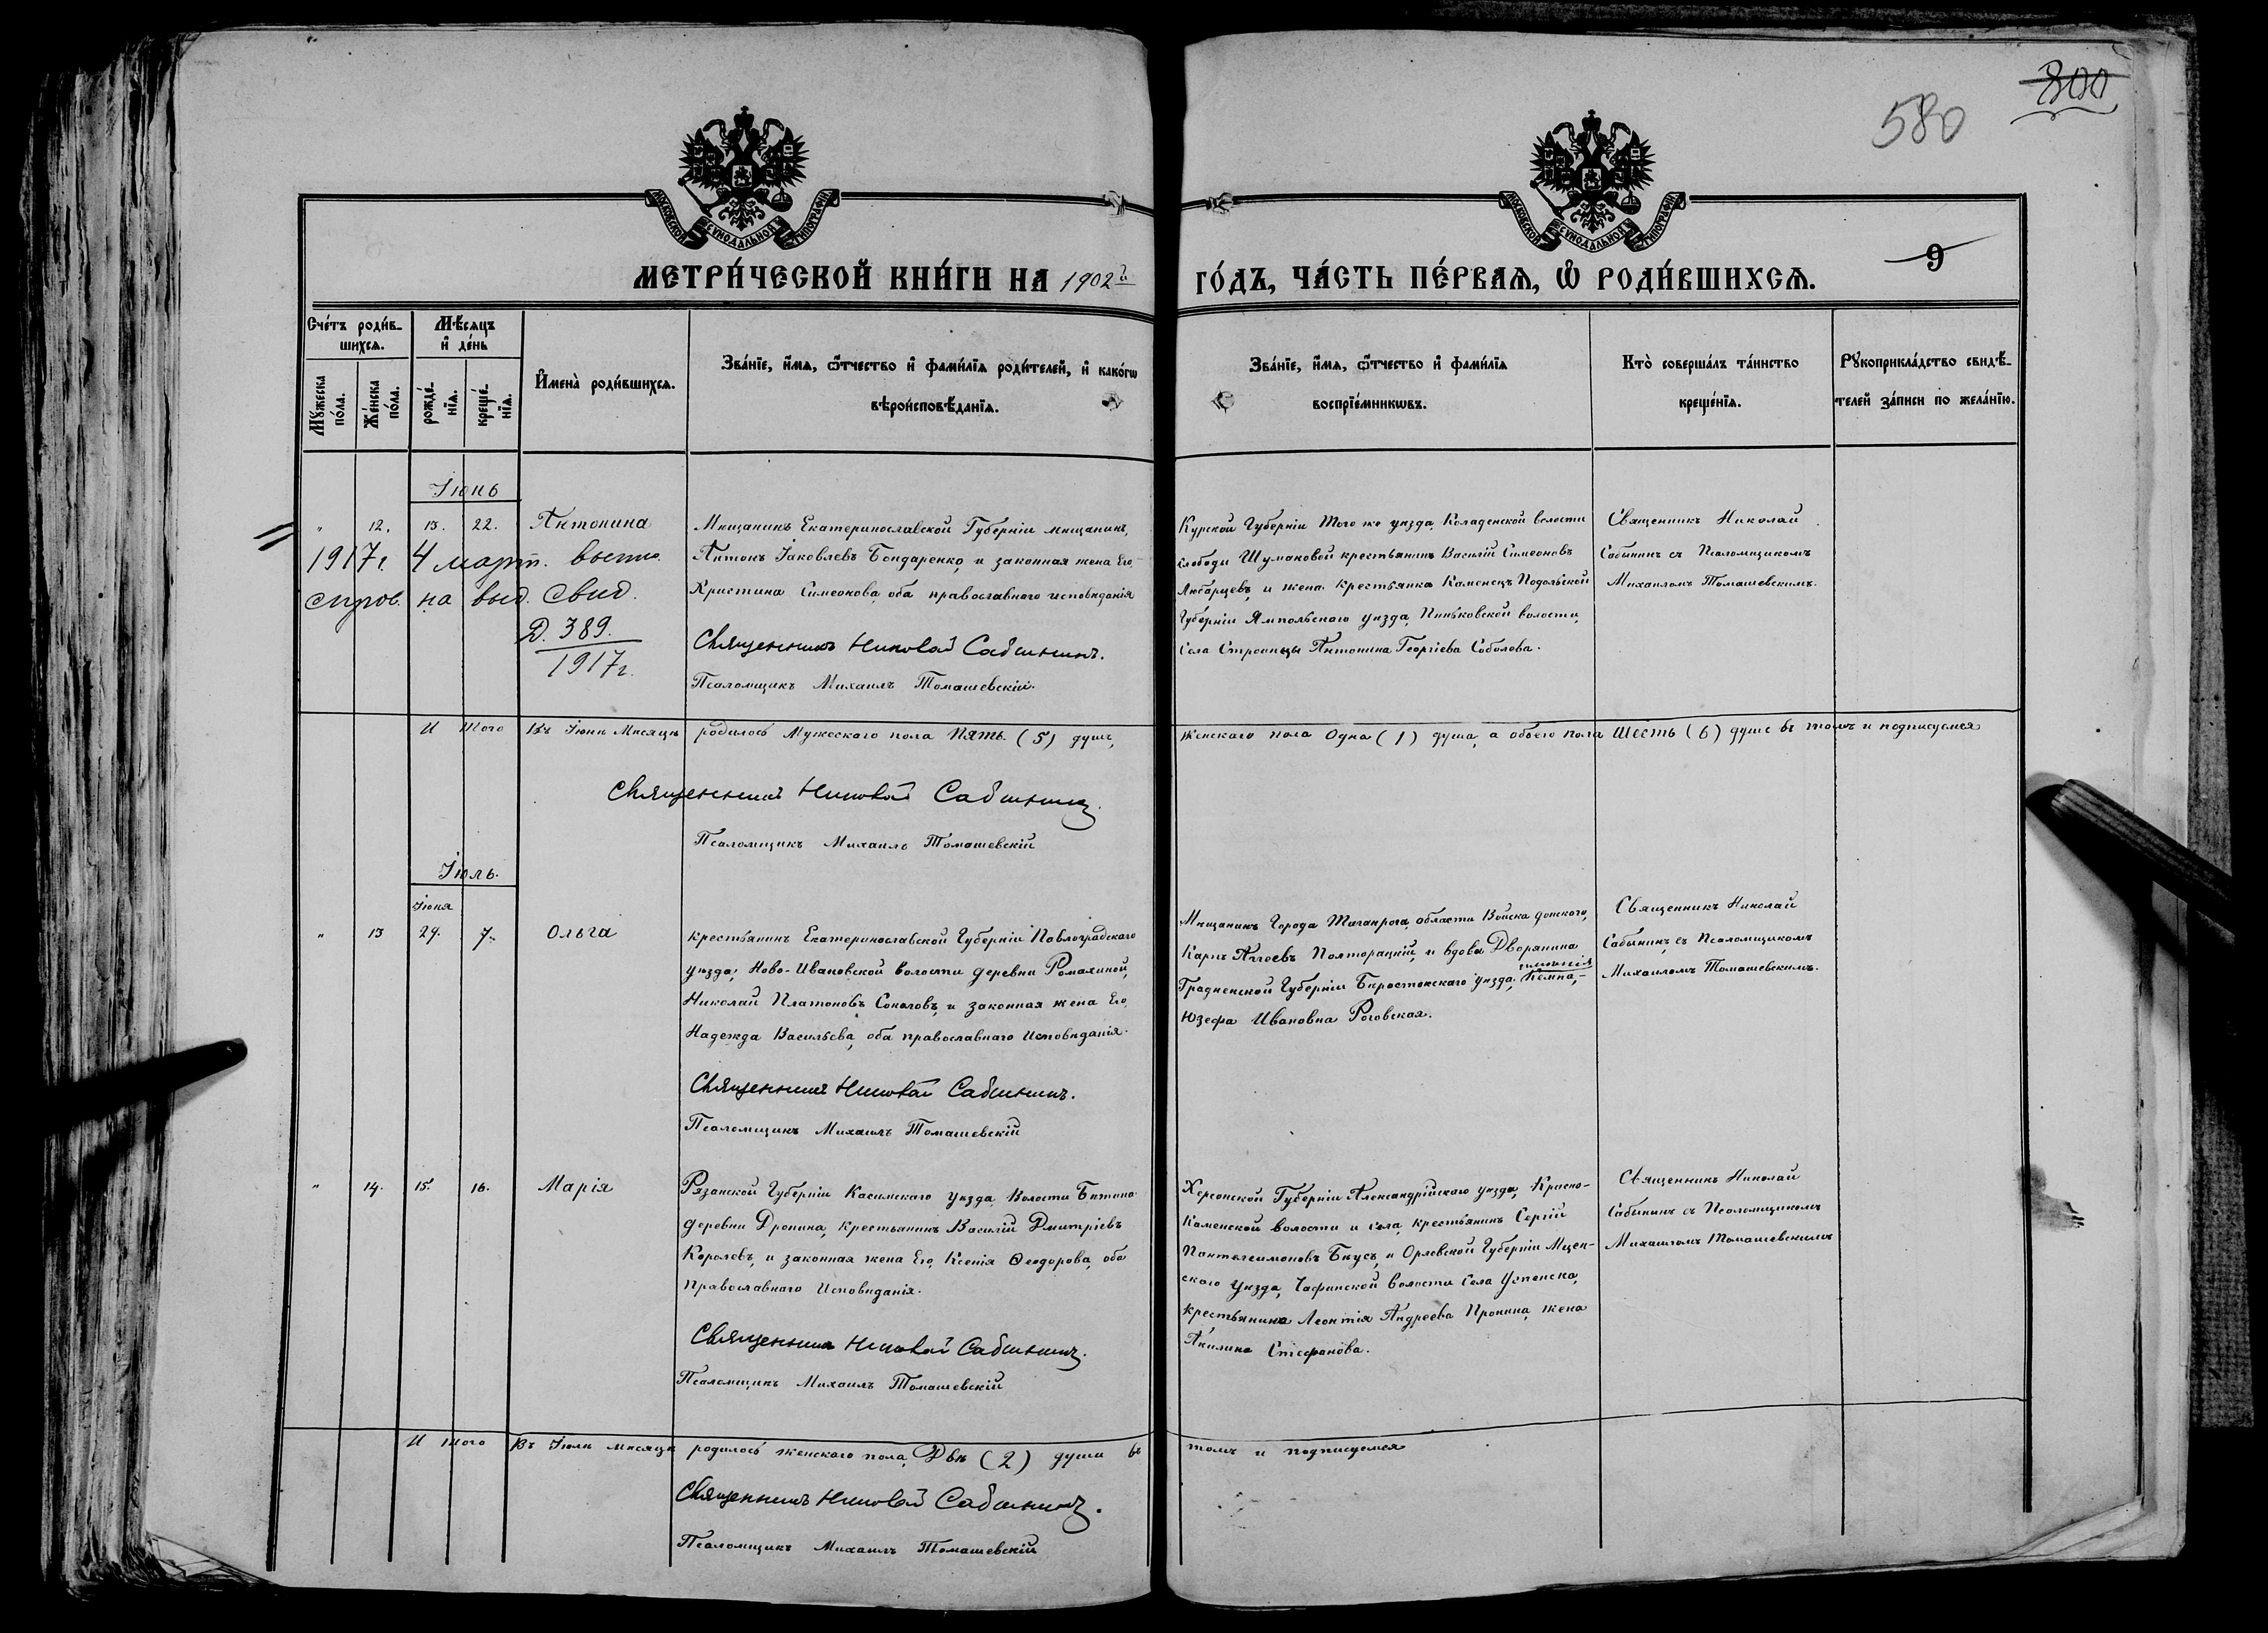 800
580
МОСКОВСКОЙ СѴНОДАЛЬНОЙ ТИПОГРАФІИ
МОСКОВСКОЙ СѴНОДАЛЬНОЙ ТИПОГРАФІИ
9
МЕТРИ́ЧЕСКОЙ КНИ́ГИ НА 1902й ГО́ДЪ, ЧА́СТЬ ПЕ́РВАѦ, Ѡ РОДИ́ВШИХСѦ.
Сче́тъ роди́в-
шихсѧ.
Мꙋ́жеска по́ла.
Же́нска по́ла.
Мѣ́сѧцъ
и де́нь
рожде́-
нїѧ.
креще́-
нїѧ.
И҆мена̀ роди́вшихсѧ.
Зва́нїе, и҆́мѧ, ѻ҆́тчество и҆ фами́лїѧ роди́телей, и҆ како́гѡ
вѣроисповѣ́данїѧ.
Зва́нїе, и҆́мѧ, ѻ҆́тчество и҆ фами́лїѧ
воспрїе́мникѡвъ.
Кто̀ соверша́лъ та́инство
креще́нїѧ.
Рꙋкоприкла́дство свидѣ́-
телей за́писи по жела́нїю.
Іюнь
" 12. 13. 22. Антонина
1917г. 4 март.
справ. на выд. свид.
Д. 389.
1917г.
Мѣщанинъ Екатеринославской Губерніи мѣщанинъ,
Антонъ Іаковлевъ Бондаренко, и законная жена Его,
Христина Симеонова, оба православнаго исповѣданія
Священникъ Николай Сабынинъ.
Псаломщикъ Михаилъ Томашевскій.
Курской Губерніи Того же уѣзда,
слободы Шумаковой крестьянинъ Василій Симеоновъ
Любарцевъ, и жена крестьянка Каменецъ Подольской
Губерніи Ямпольскаго уѣзда, Пеньковской волости,
Села Антонина Георгіева Соболева.
Священникъ Николай
Сабынинъ съ Псаломщикомъ
Михаиломъ Томашевскимъ.
И того Въ Іюнѣ Мѣсяцѣ родилось Мужескаго пола Пять (5) душъ, женскаго пола Одна (1) душа, а обоего пола Шесть (6) душъ въ томъ и подписуемся
Священникъ Николай Сабынинъ.
Псаломщикъ Михаилъ Томашевскій
Іюль.
Іюня
" 13 29. 7. Ольга
крестьянинъ Екатеринославской Губерніи Павлоградскаго
уѣзда, Ново-Ивановской волости деревни Ромахиной,
Николай Платоновъ Соколовъ, и законная жена Его,
Надежда Васильева, оба православнаго Исповѣданія.
Священникъ Николай Сабынинъ.
Псаломщикъ Михаилъ Томашевскій
Мѣщанинъ Города Таганрога, области Войска донского,
Карпъ Полторацкій, и вдова Дворянина
имѣнія
Гродненской Губерніи уѣзда,
Юзефа Ивановна Роговская.
Священникъ Николай
Сабынинъ, съ Псаломщикомъ
Михаиломъ Томашевскимъ.
" 14. 15. 16. Марія
Рязанской Губерніи Касимскаго уѣзда, Волости
деревни Дронина, крестьянинъ Василій Дмитріевъ
Королевъ, и законная жена Его, Ксенія Ѳеодорова, оба
Православнаго Исповѣданія.
Священникъ Николай Сабынинъ.
Псаломщикъ Михаилъ Томашевскій
Херсонской Губерніи Александрійскаго уѣзда, Красно-
Каменской волости и села, крестьянинъ Сергій
Пантелеимоновъ и Орловской Губерніи Мцен-
скаго уѣзда, волости Села Успенска,
крестьянина Леонтія Андреева Пронина, жена
Акилина Стефанова.
Священникъ Николай
Сабынинъ съ Псаломщикомъ
Михаиломъ Томашевскимъ
И того Въ Іюлѣ мѣсяцѣ родилось женскаго пола Двѣ (2) души въ томъ и подписуемся
Священникъ Николай Сабынинъ.
Псаломщикъ Михаилъ Томашевскій